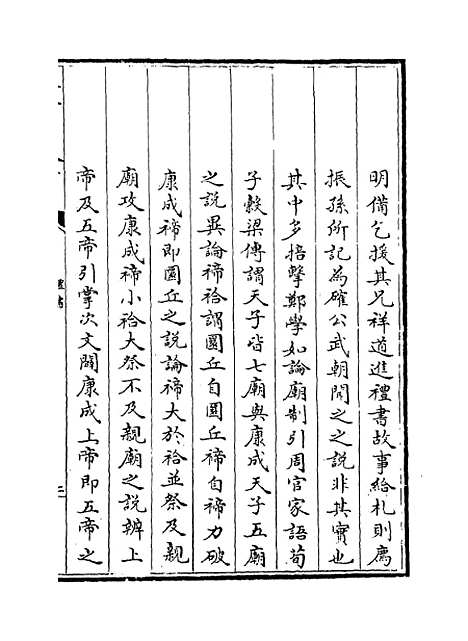 明備乞援其兄祥道進禮書故事給札則廌
振孫所記為確公武朝聞之之說非其實也
其中多掊擊鄭學如論廟制引周官家語荀
子穀梁傳謂天子皆七廟與康成天子五廟
之說異論禘祫謂圜丘自圜丘禘自禘力破
康成禘即圜丘之說論禘大於祫並祭及親
廟攻康成禘小祫大祭不及親廟之說辨上
帝及五帝引掌次文闢康成上帝即五帝之